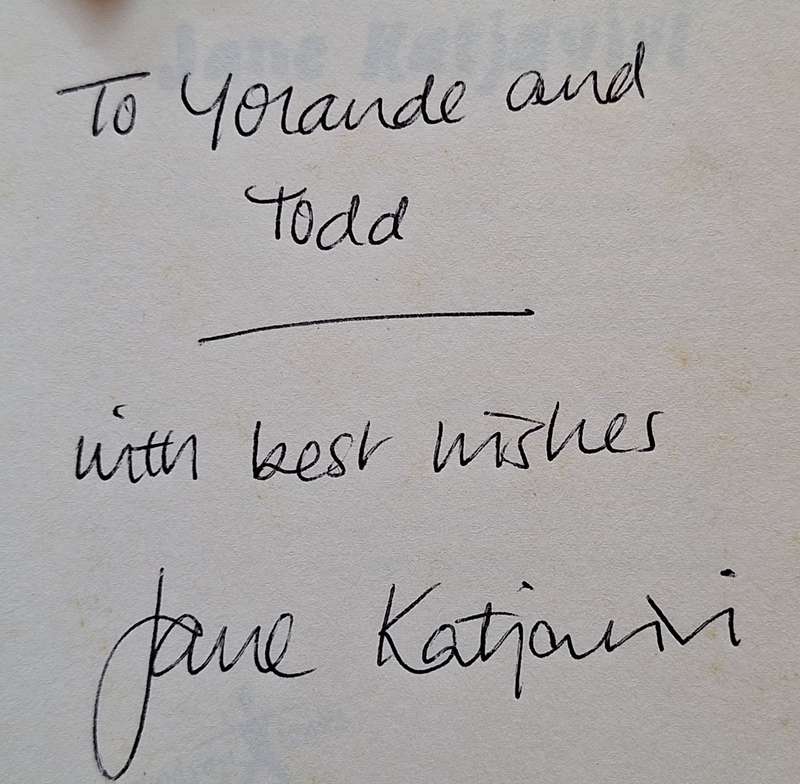 To Yolande and
Todd
with best wishes
Jane Katjavivi